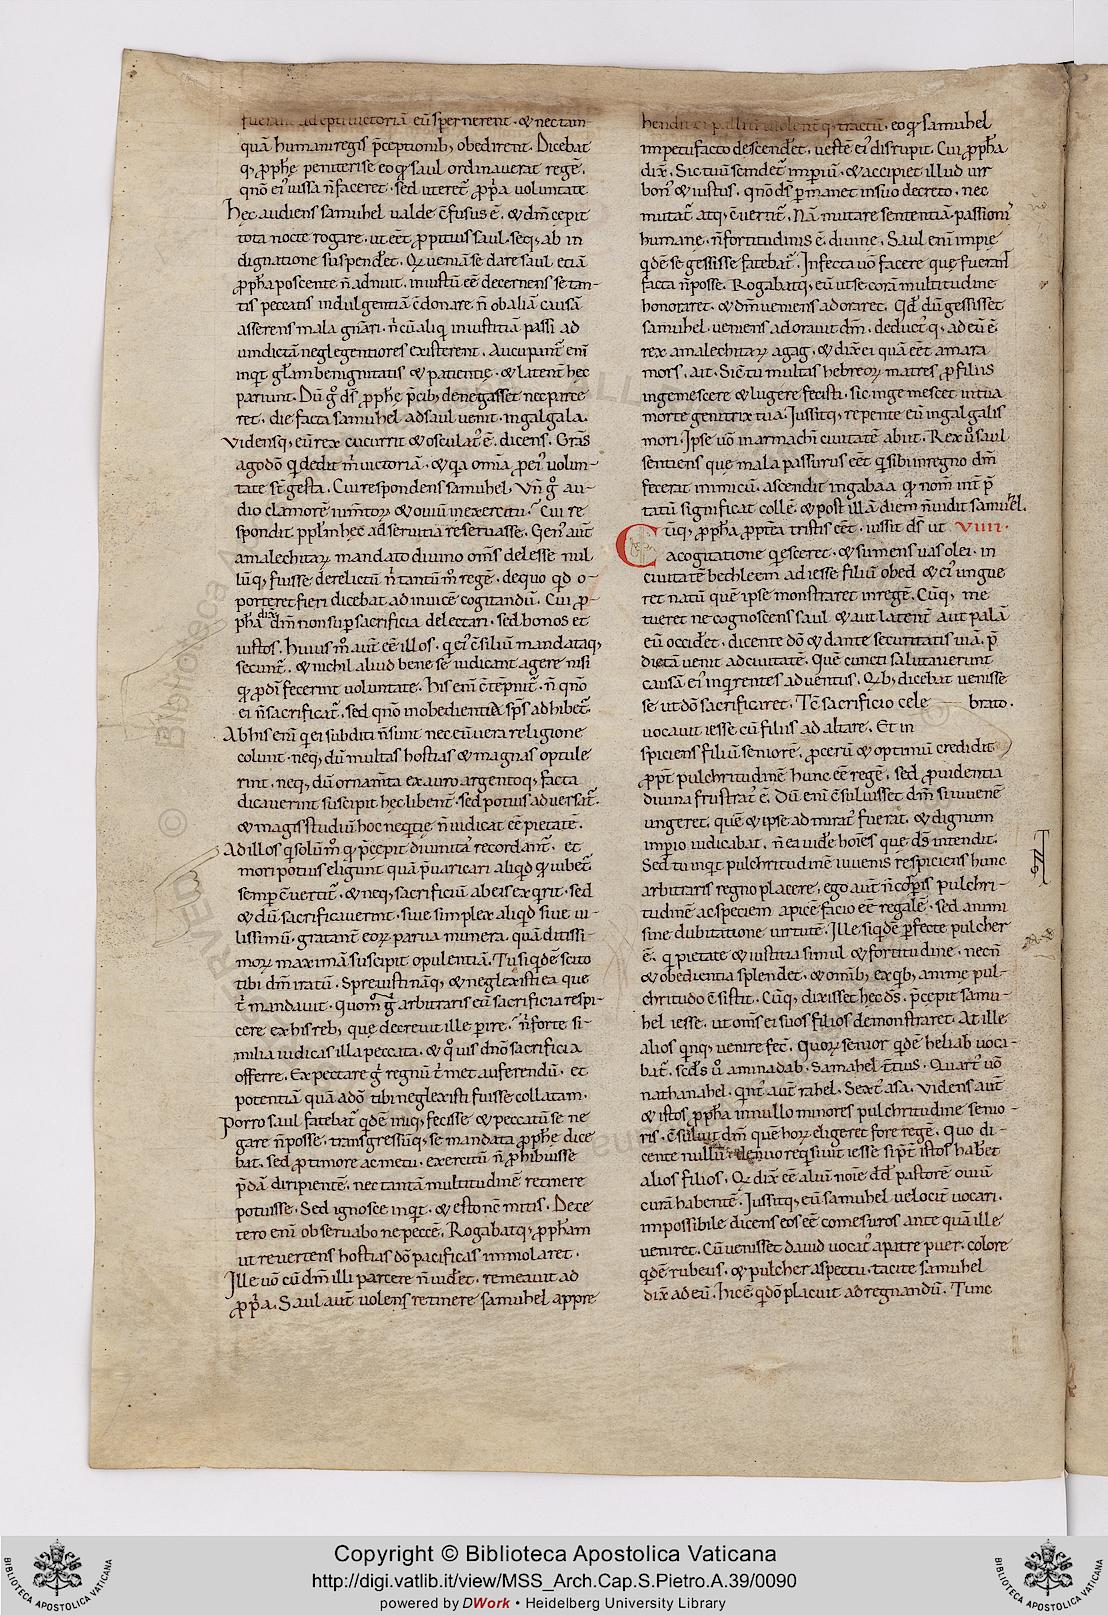 fuerant adepti victoriā eū spernerent · & nec tam
quā humani regis p̄ceptionib; obedirent · Dicebat
q; ꝓph̨ę penitere se eo qđ saul ordinauerat regē ·
qnō ei' iussa n̄ faceret · sed uteret̄ ꝓp̄a uoluntate
Hęc audiens samuhel ualde c̄fusus ē · & dm̄ cepit
tota nocte rogare · ut eēt ꝓpitius saul · seq; ab in
dignatione suspend̄et · Qꝫ ueniā se dare saul etiā
ꝓph̄a poscente n̄ adnuit · iniustū eē decernens se tan-
tis peccatis indulgentiā c̄donare · n̄ ob aliā causā
asserens mala gn̄ari · n̄ cū aliq̄ iniustitiā passi ad
uindictā neglegentiores existerent · Aucupant̄ eni
inqt gl̄am benignitatis & patientię · & latent̄ hęc
pariunt · Dū g̊ ds̄ ꝓph̨ę p̄cib; denegasset nec parce
ret · die facta samuhel ad saul uenit in galgala ·
Vidensq; eū rex cucurrit & osculat' ē · dicens · Grās
ago dō qi dedit m̄ uictoriā · & qa om̄ia ꝓ ei' uolun-
tate st̄ gesta · Cui respondens samuhel · Vn̄ g̊ au-
dio clamorē iumtoꝝ & ouiū in exercitu · Cui re
spondit pplm̄ hęc ad seruitia reseruasse · Gen' aut̄
amalechitaꝝ mandato diuino om̄s delesse nul
lūq; fuisse derelictū n̄ tantū m̊ regē · de quo qd o-
porteret fieri dicebat ad inuicē cogitandū · Cui ꝓ-
ph̄a dix̄ dm̄ non sup sacrificia delectari · sed bonos et
iustos · huius m̊ aut̄ eē illos · qi ei' c̄siliū mandataq;
secunt̄ · & nichil aliud bene se iudicant agere nisi
qđ ꝓ dī fecerint uoluntate · his eni c̄tēpnit̄ · n̄ qnō
ei n̄ sacrificat̄ · sed qnō inobedientia ip̄s adhibet̄ ·
Ab his eni qi ei subditi n̄ sunt nec eū uera religione
colunt · neq; dū multas hostias & magnas optule
rint · neq; dū ornamta ex auro argentoq; facta
dicauerint suscipit hęc libent̄ · sed potius aduersat̄ ·
& magis studiū hoc neqtię n̄ iudicat eē pietatē ·
Ad illos qi solūm̊ qđ p̄cepit diuinita' recordant̄ · et
mori potius eligunt quā p̄uaricari aliqd qđ iubet̄ ·
semp c̄uertit̄ · & neq; sacrificiū ab eis exqrit · sed
& dū sacrificauerint · siue simplex aliqd siue ui-
lissimū · gratant̄ eoꝝ parua munera · quā ditissi-
moꝝ maximā suscipit opulentiā · Tu siqdē scito
tibi dm̄ iratū · Spreuisti nāq; & neglexisti ea que
t̄ mandauit · Quom̊ g̊ arbitraris eū sacrificia respi-
cere ex his reb; quę decreuit ille pire · n̄ forte si-
milia iudicas illa peccata · & q̊ uis dn̄o sacrificia
offerre · Expectare g̊ regnū t̄ met auferendū · et
potentiā quā a dō tibi neglexisti fuisse collatam ·
Porro saul fatebat̄ qdē iniq; fecisse & peccatū se ne
gare n̄ posse · transgressūq; se mandata ꝓph̨ę dice
bat · sed ꝓ timore ac metu · exercitū n̄ ꝓhibuisse
p̄dā diripientē · nec tantā multitudinē retinere
potuisse · Sed ignosce inqt · & esto nc̄ mitis · Dece
tero eni obseruabo ne peccē · Rogabatq; ꝓph̄am
ut reuertens hostias dō pacificas immolaret ·
Ille uō cū dm̄ illi parcere n̄ uid̄et · remeauit ad
ꝓp̄a · Saul aut̄ uolens retinere samuhel appre
hendit ei palliū uiolent̄q; tractū · eo qđ samuhel
impetu facto descend̄et · uestē ei' disrupit · Cui ꝓph̄a
dix̄ · Sic tuū scindet̄ imperiū · & accipiet illud uir
bon' & iustus · qnō ds̄ pmanet in suo decreto · nec
mutat̄ atq; c̄uertit̄ · Nā mutare sententiā · passioni'
humanę · n̄ fortitudinis ē · diuine · Saul eni impię
qdē se gessisse fatebat̄ · Infecta uō facere quę fuerant
facta n̄ posse · Rogabatq; eū ut se corā multitudine
honoraret · & dm̄ ueniens adoraret · Qd dū gessisset
samuhel · ueniens adorauit dm̄ · deduct'q; ad eū ē ·
rex amalechitaꝝ agag · & dixit ei quā eēt amara
mors · ait · Sic tu multas hebreoꝝ matres ꝓ filiis
ingemescere & lugere fecisti · sic ingemescet in tua
morte genitrix tua · Iussitq; repente eū in galgalis
mori · Ipse uō in armachi ciuitatē abiit · Rex ů saul
sentiens que mala passurus eēt qi sibi in regno dm̄
fecerat inimicū · ascendit in gabaa qđ nom̄ int̄p̄
tatū significat collē · & post illā diem n̄ uidit samuhel ·
Cūq; ꝓph̄a ꝓptea tristis eēt · iussit ds̄ ut VIIII ·
a cogitatione qesceret · & sumens uas olei · in
ciuitatē bechleem ad iesse filiū obed & ei' ungue
ret natū quē ipse monstraret in regē · Cūq; me
tueret ne cognoscens saul & aut latent̄ aut palā
eū occid̄et · dicente dō & dante securitatis uiā · p̄
dictā uenit ad ciuitatē · Quē cuncti salutauerunt
causā ei' inqrentes aduentus · Qb; dicebat uenisse
se ut dō sacrificaret · Tc̄ sacrificio cele brato ·
uocauit iesse cū filiis ad altare · Et in
spiciens filiū seniorē · ꝓcerū & optimū credidit
ꝓpt̄ pulchritudinē hunc eē regē · sed ꝓuidentia
diuina frustrat' ē · Dū eni c̄suluisset dm̄ si iuuenē
ungeret · quē & ipse admirat' fuerat · & dignum
impio iudicabat · n̄ ea uid̄e hoīes que dm̄ intendit ·
Sed tu inqt pulchritudinē iuuenis respiciens hunc
arbitraris regno placere · ego aut̄ n̄ corpis pulchri-
tudinē ac speciem apicē facio eē regalē · sed animi
sine dubitatione uirtutē · Ille siqdē pfecte pulcher
ē · qi pietate & iustitia simul & fortitudine · necn̄
& obedientia splendet · & omib; ex qb; animę pul-
chritudo c̄sistit · Cūq; dixisset hęc ds̄ · p̄cepit samu-
hel iesse · ut om̄s ei suos filios demonstraret · At ille
alios qnq; uenire fec̄ · Quoꝝ senior qdē heliab uoca-
bat̄ · secds ů aminadab · Samahel t̄cius · Quart' uō
nathanahel · qint' aut̄ rahel · Sext' asa · Videns aut̄
& istos ꝓph̄a in nullo minores pulchritudine senio-
ris · c̄suluit dm̄ quē hoꝝ eligeret fore regē · quo di-
cente nullū · denuo reqsiuit iesse sip̄t istos hab̄et
alios filios · Qꝫ dix̄ eē aliū noīe dd̄ pastorē ouiū
curā habentē · Iussitq; eū samuhel uelocit̄ uocari ·
impossibile dicens eos eē comesuros ante quā ille
ueniret · Cū uenisset dauid uocat' a patre puer · colore
qdē rubeus · & pulcher aspectu · tacite samuhel
dix̄ ad eū · hic ē · qi dō placuit ad regnandū · Tunc
Copyright © Biblioteca Apostolica Vaticana
http://digi.vatlib.it/view/MSS_Arch.Cap.S.Pietro.A.39/0090
powered by DWork • Heidelberg University Library
BIBLIOTECA APOSTOLICA VATICANA
BIBLIOTECA APOSTOLICA VATICANA